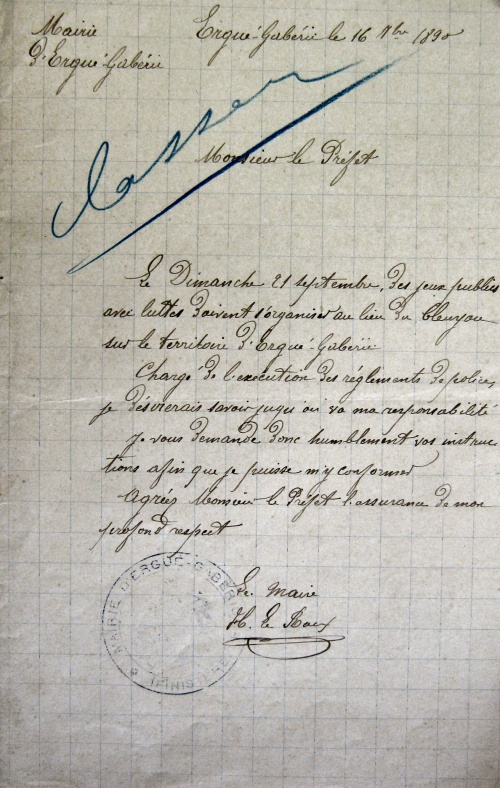 Mairie
d'Ergué-Gabéric
Ergué-Gabéric le 16 7bre 1890
classer
Monsieur le Préfet
Le Dimanche 21 septembre, des jeux publics
avec luttes doivent s'organiser au lieu du Cleuyou
sur le territoire d'Ergué-Gabéric
Chargé de l'exécution des réglements de polices
je désirerais savoir jusqu'où va ma responsabilité
Je vous demande donc humblement vos instruc
tions afin que je puisse m'y conformer
Agréez Monsieur le Préfet l'assurance de mon
profond respect
Le Maire
H. Le Roux
MAIRIE D'ERGUÉ-GABÉRIC
FINISTÈRE